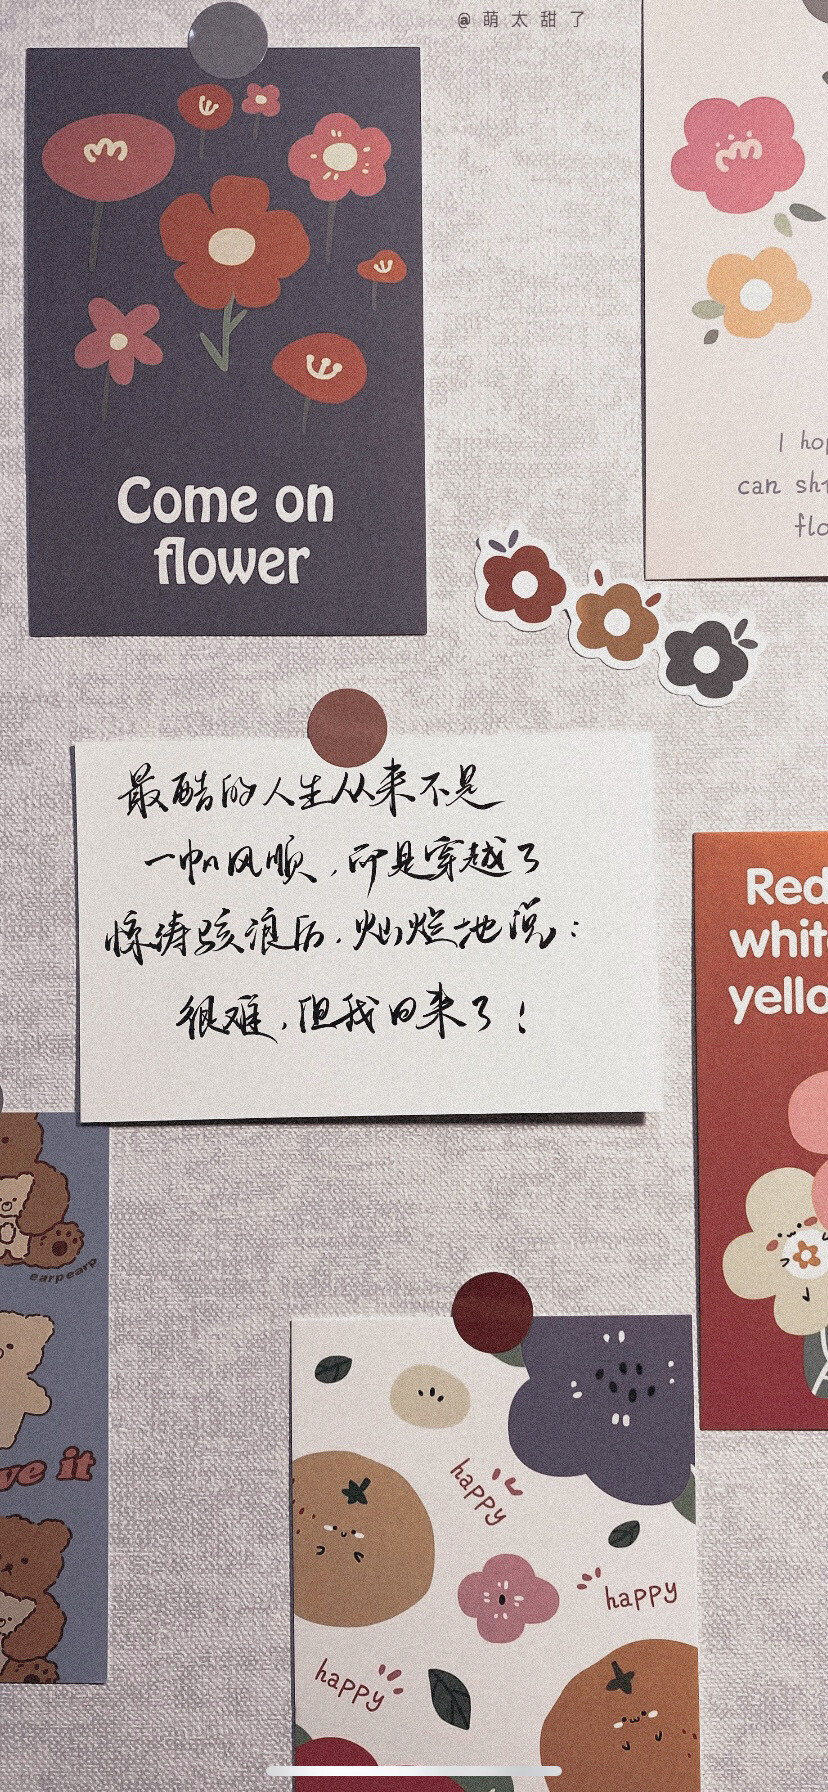 @萌太甜了
Come on
flower
I hop
can shi
flo
最酷的人生从来不是
一帆风顺，而是穿越了
惊涛骇浪后，灿烂地说：
很难，但我回来了！
Red
white
yello
earpearp
ve it
happy
happy
happy